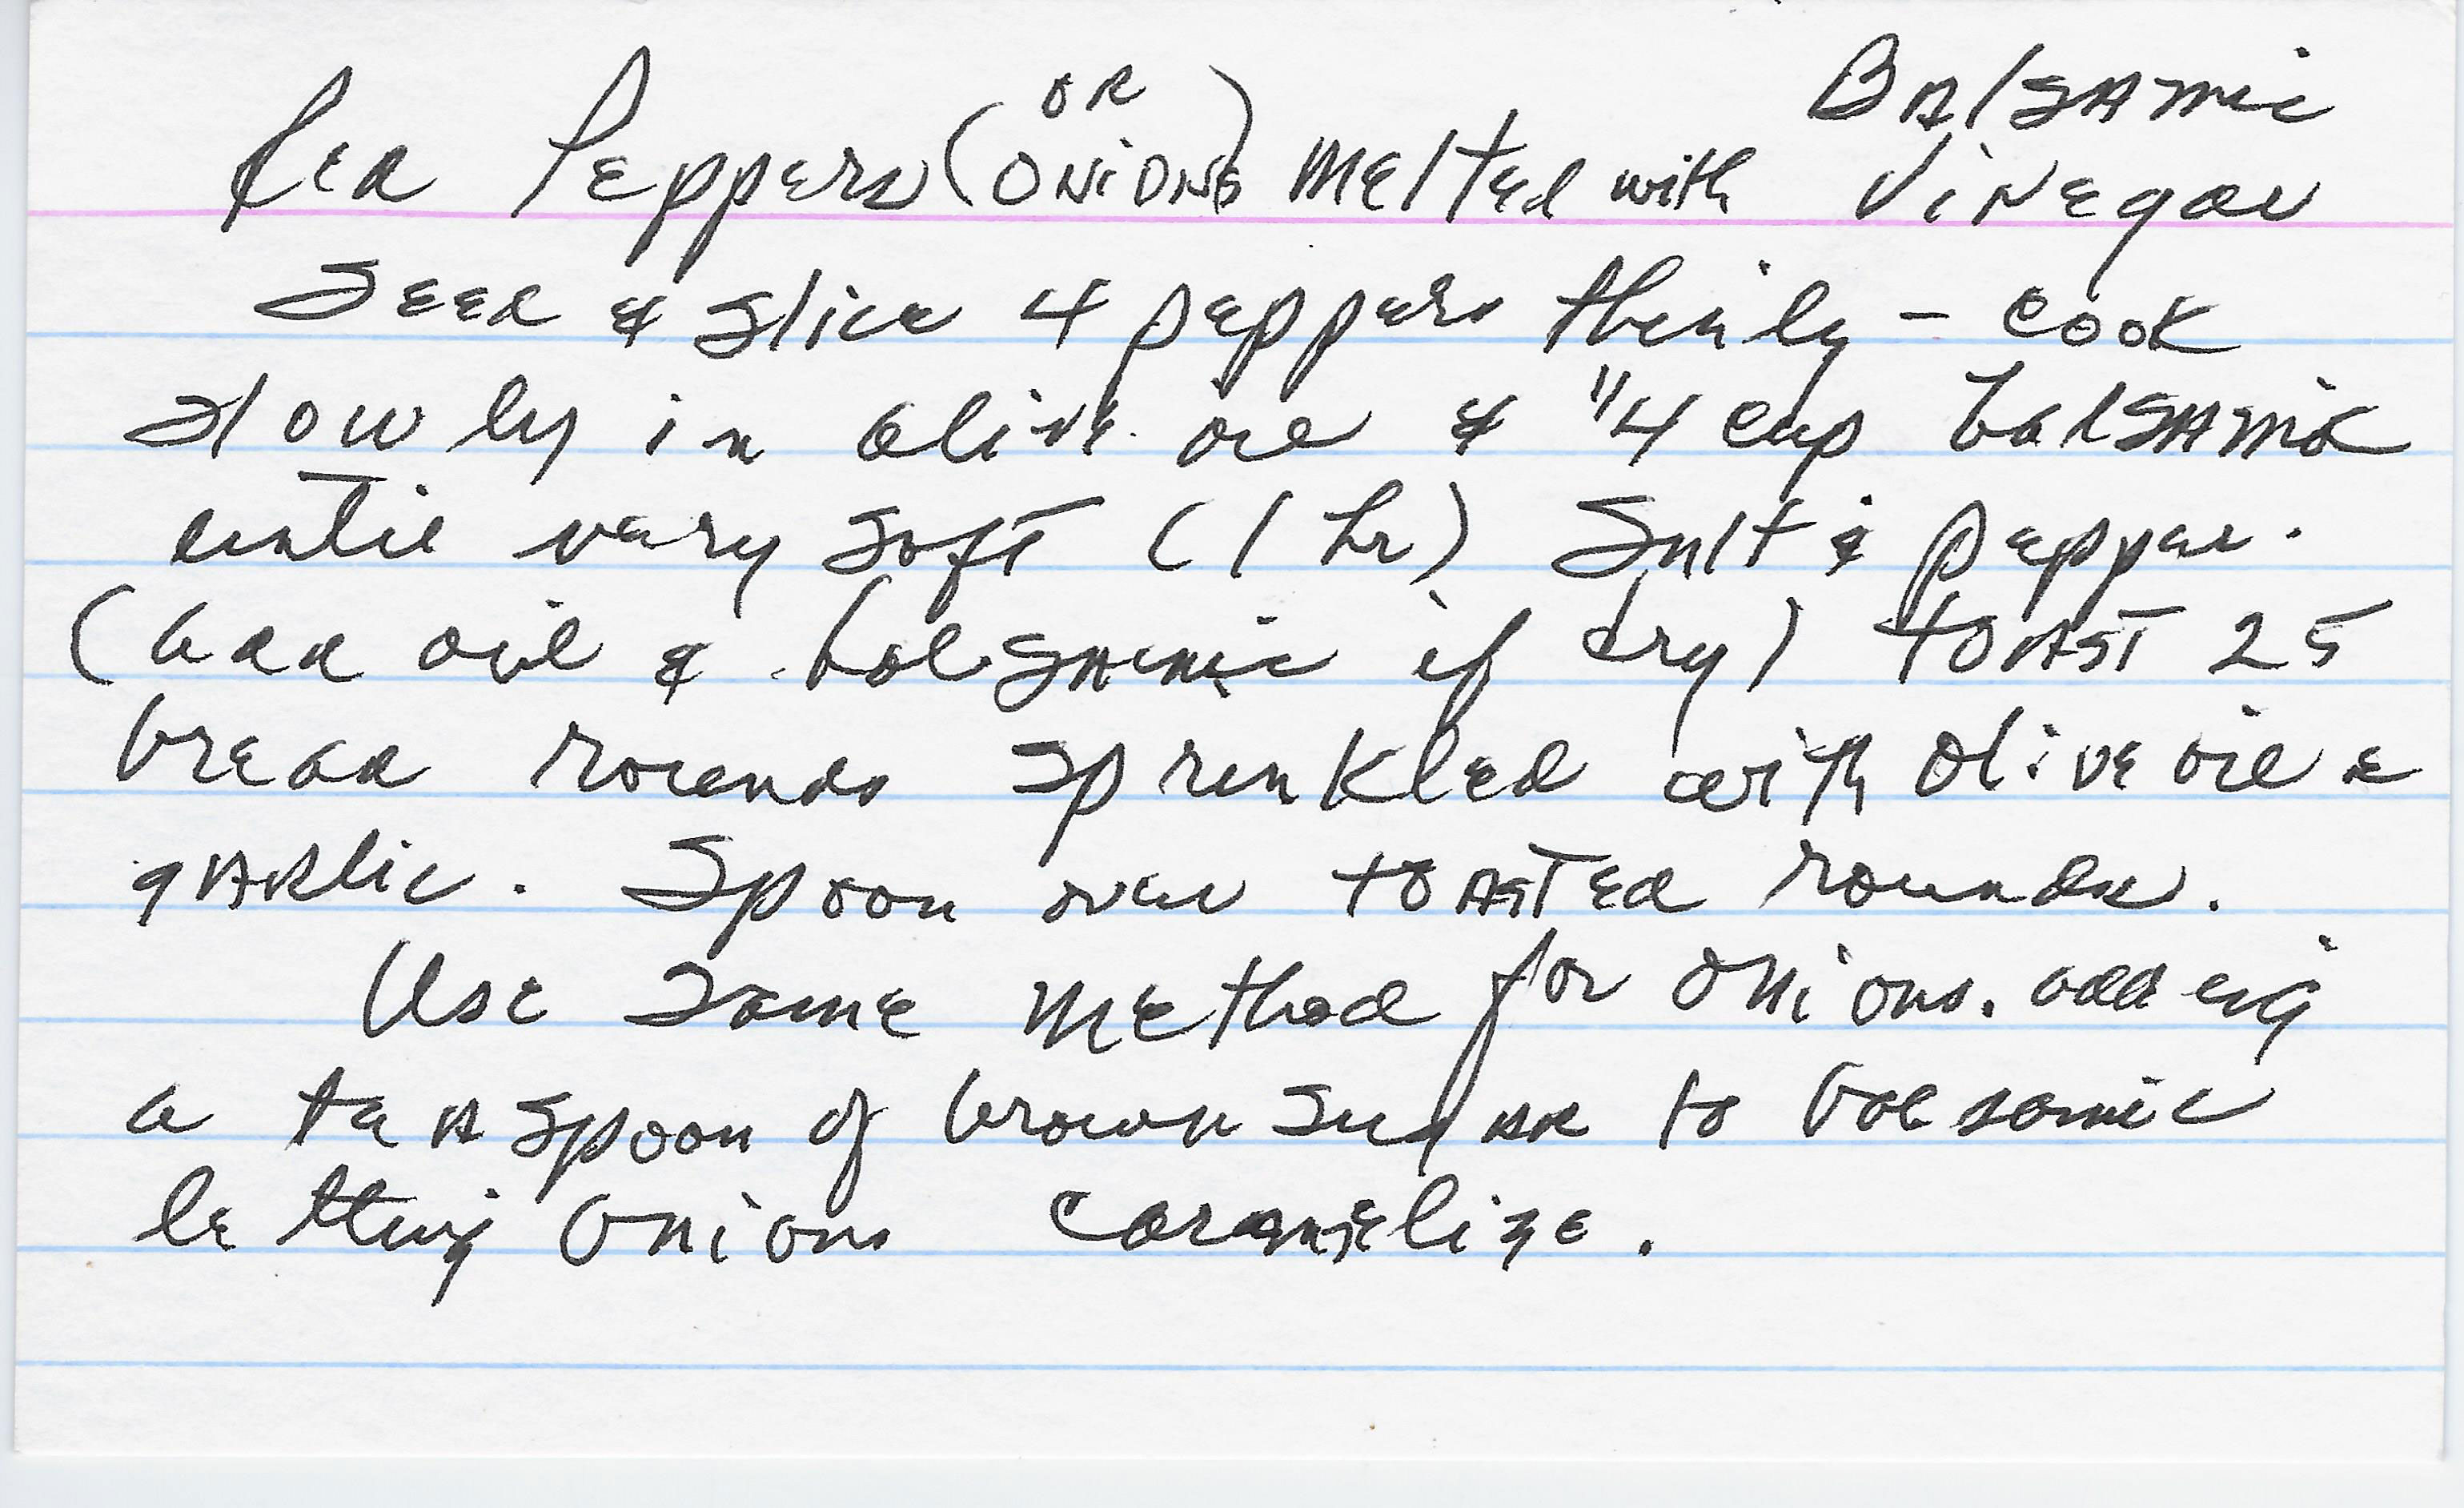 Red Peppers (OR ONIONS) Melted with Balsamic Vinegar
Seed & slice 4 peppers thinly - cook
slowly in olive oil & 1/4 cup balsamic
until very soft (1 hr) Salt & pepper.
(add oil & balsamic if dry) toast 25
bread rounds sprinkled with olive oil &
garlic. Spoon over toasted rounds.
Use same method for onions. adding
a teaspoon of brown sugar to balsamic
letting onions caramelize.